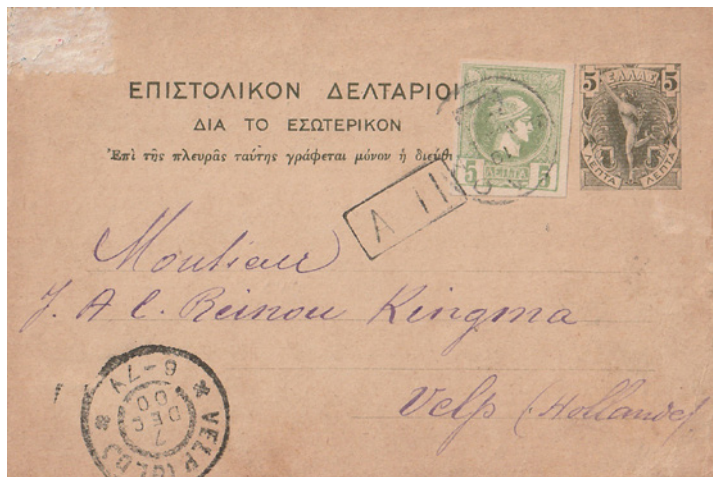 ΕΠΙΣΤΟΛΙΚΟΝ ΔΕΛΤΑΡΙΟ
ΔΙΑ ΤΟ ΕΣΩΤΕΡΙΚΟΝ
Ἐπὶ τῆς πλευρᾶς ταύτης γράφεται μόνον ἡ διεύθ
5 ΛΕΠΤΑ 5
5 ΕΛΛΑΣ 5
ΛΕΠΤΑ ΛΕΠΤΑ
Monsieur
J. A. C. Reinou Kingma
Velp (Hollande).
VELP (GLD)
7 DEC 00
6-7V